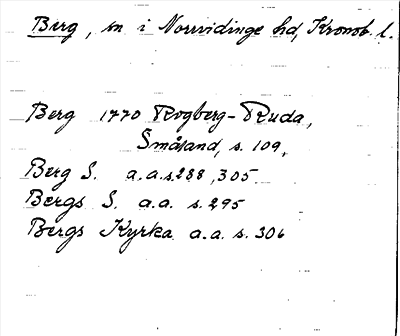 Berg, sn i Norrvidinge hd, Kronob. l.
Berg 1770 Rogberg-Ruda,
Småland, s. 109,
Berg S. a.a.s.288, 305
Bergs S. a.a. s. 295
Bergs Kyrka a.a. s. 306